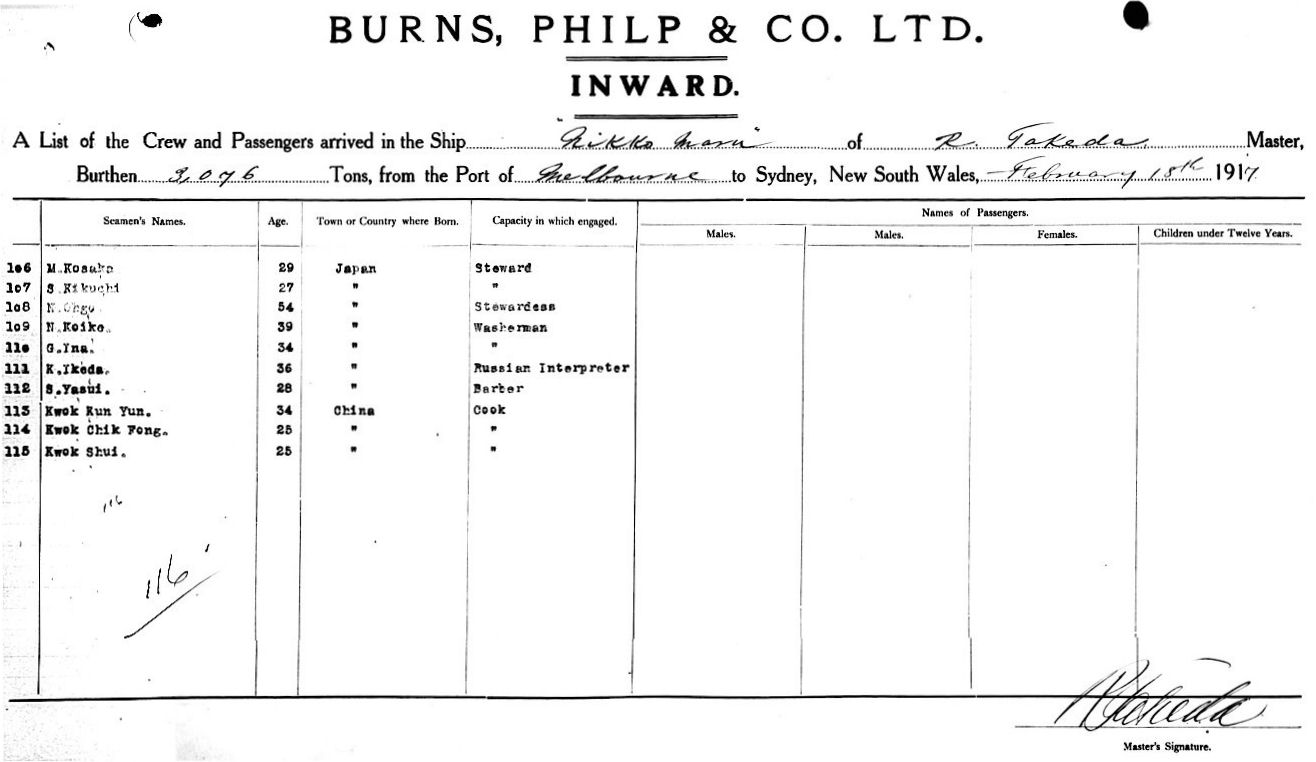 BURNS, PHILP & CO. LTD.
INWARD.
A List of the Crew and Passengers arrived in the Ship "Nikko Maru" of R. Takeda Master,
Burthen 3,076 Tons, from the Port of Melbourne to Sydney, New South Wales, February 18th 1917
Names of Passengers.
Seamen's Names. Age. Town or Country where Born. Capacity in which engaged. Males. Males. Females. Children under Twelve Years.
106 M.Kosaka 29 Japan Steward
107 S.Kikuchi 27 " "
108 54 " Stewardess
109 N.Koike. 39 " Washerman
110 G.Ina. 34 " "
111 K.Ikeda. 36 " Russian Interpreter
112 S.Yasui. 28 " Barber
113 Kwok Kun Yun. 34 China Cook
114 Kwok Chik Fong. 25 " "
115 Kwok Shui. 25 " "
116
116
R Takeda
Master's Signature.